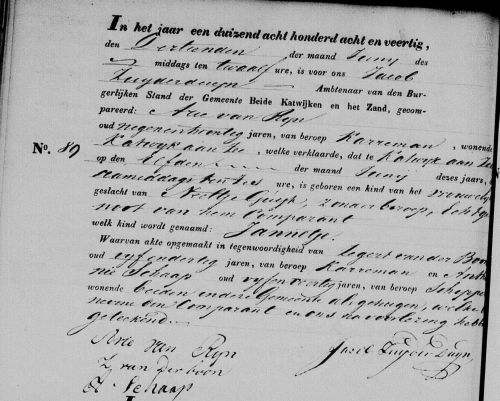 In het jaar een duizend acht honderd acht en veertig,
den Dertienden der maand Juny des
middags ten twaalf ure, is voor ons Jacob
Zuyderduyn Ambtenaar van den Bur-
gerlijken Stand der Gemeente Beide Katwijken en het Zand, gecom-
pareerd: Arie van Ryn
oud negenentwintig jaren, van beroep Karreman, wonende
No. 89 Katwyk aan Zee, welke verklaarde, dat te Katwyk aan Zee
op den Elfden der maand Juny dezes jaars,
namiddags ten ure, is geboren een kind van het vrouwelyk
geslacht van Neeltje zonder beroep, echtge-
noot van hem Comparant
welk kind wordt genaamd: Jannetje.
Waarvan akte opgemaakt in tegenwoordigheid van Zegert van der Boon
oud vyfendertig jaren, van beroep Karreman en
Schaap oud jaren, van beroep Schipper
wonende beiden in deze Gemeente als getuigen, welke
nevens den Comparant en ons na voorlezing hebben
geteekend.
Arie van Ryn
Z. van der boon Jacob Zuyderduyn
A. Schaap